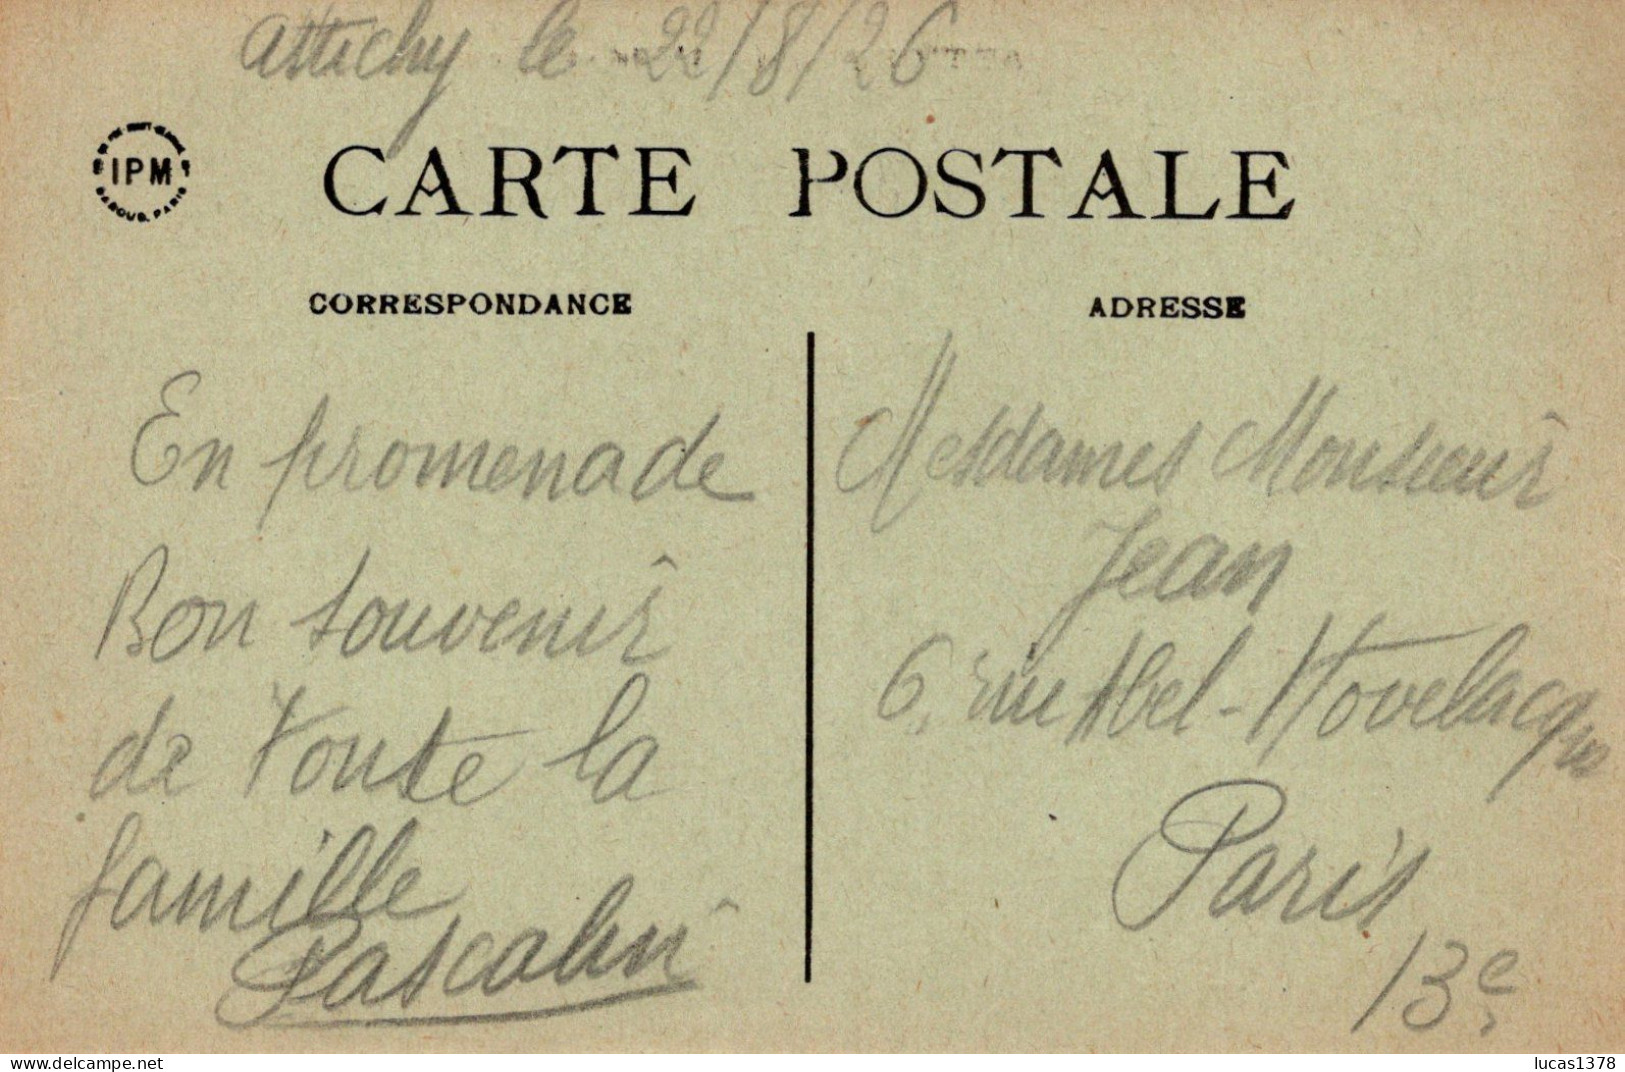 Attichy le 22/8/26
IPM
CARTE POSTALE
CORRESPONDANCE
ADRESSE
En promenade
Bon souvenir
de toute la
famille
Mesdames Monsieur
Jean
6, rue Abel-Hovelacque
Paris
13e
delcampe.net
lucas1378